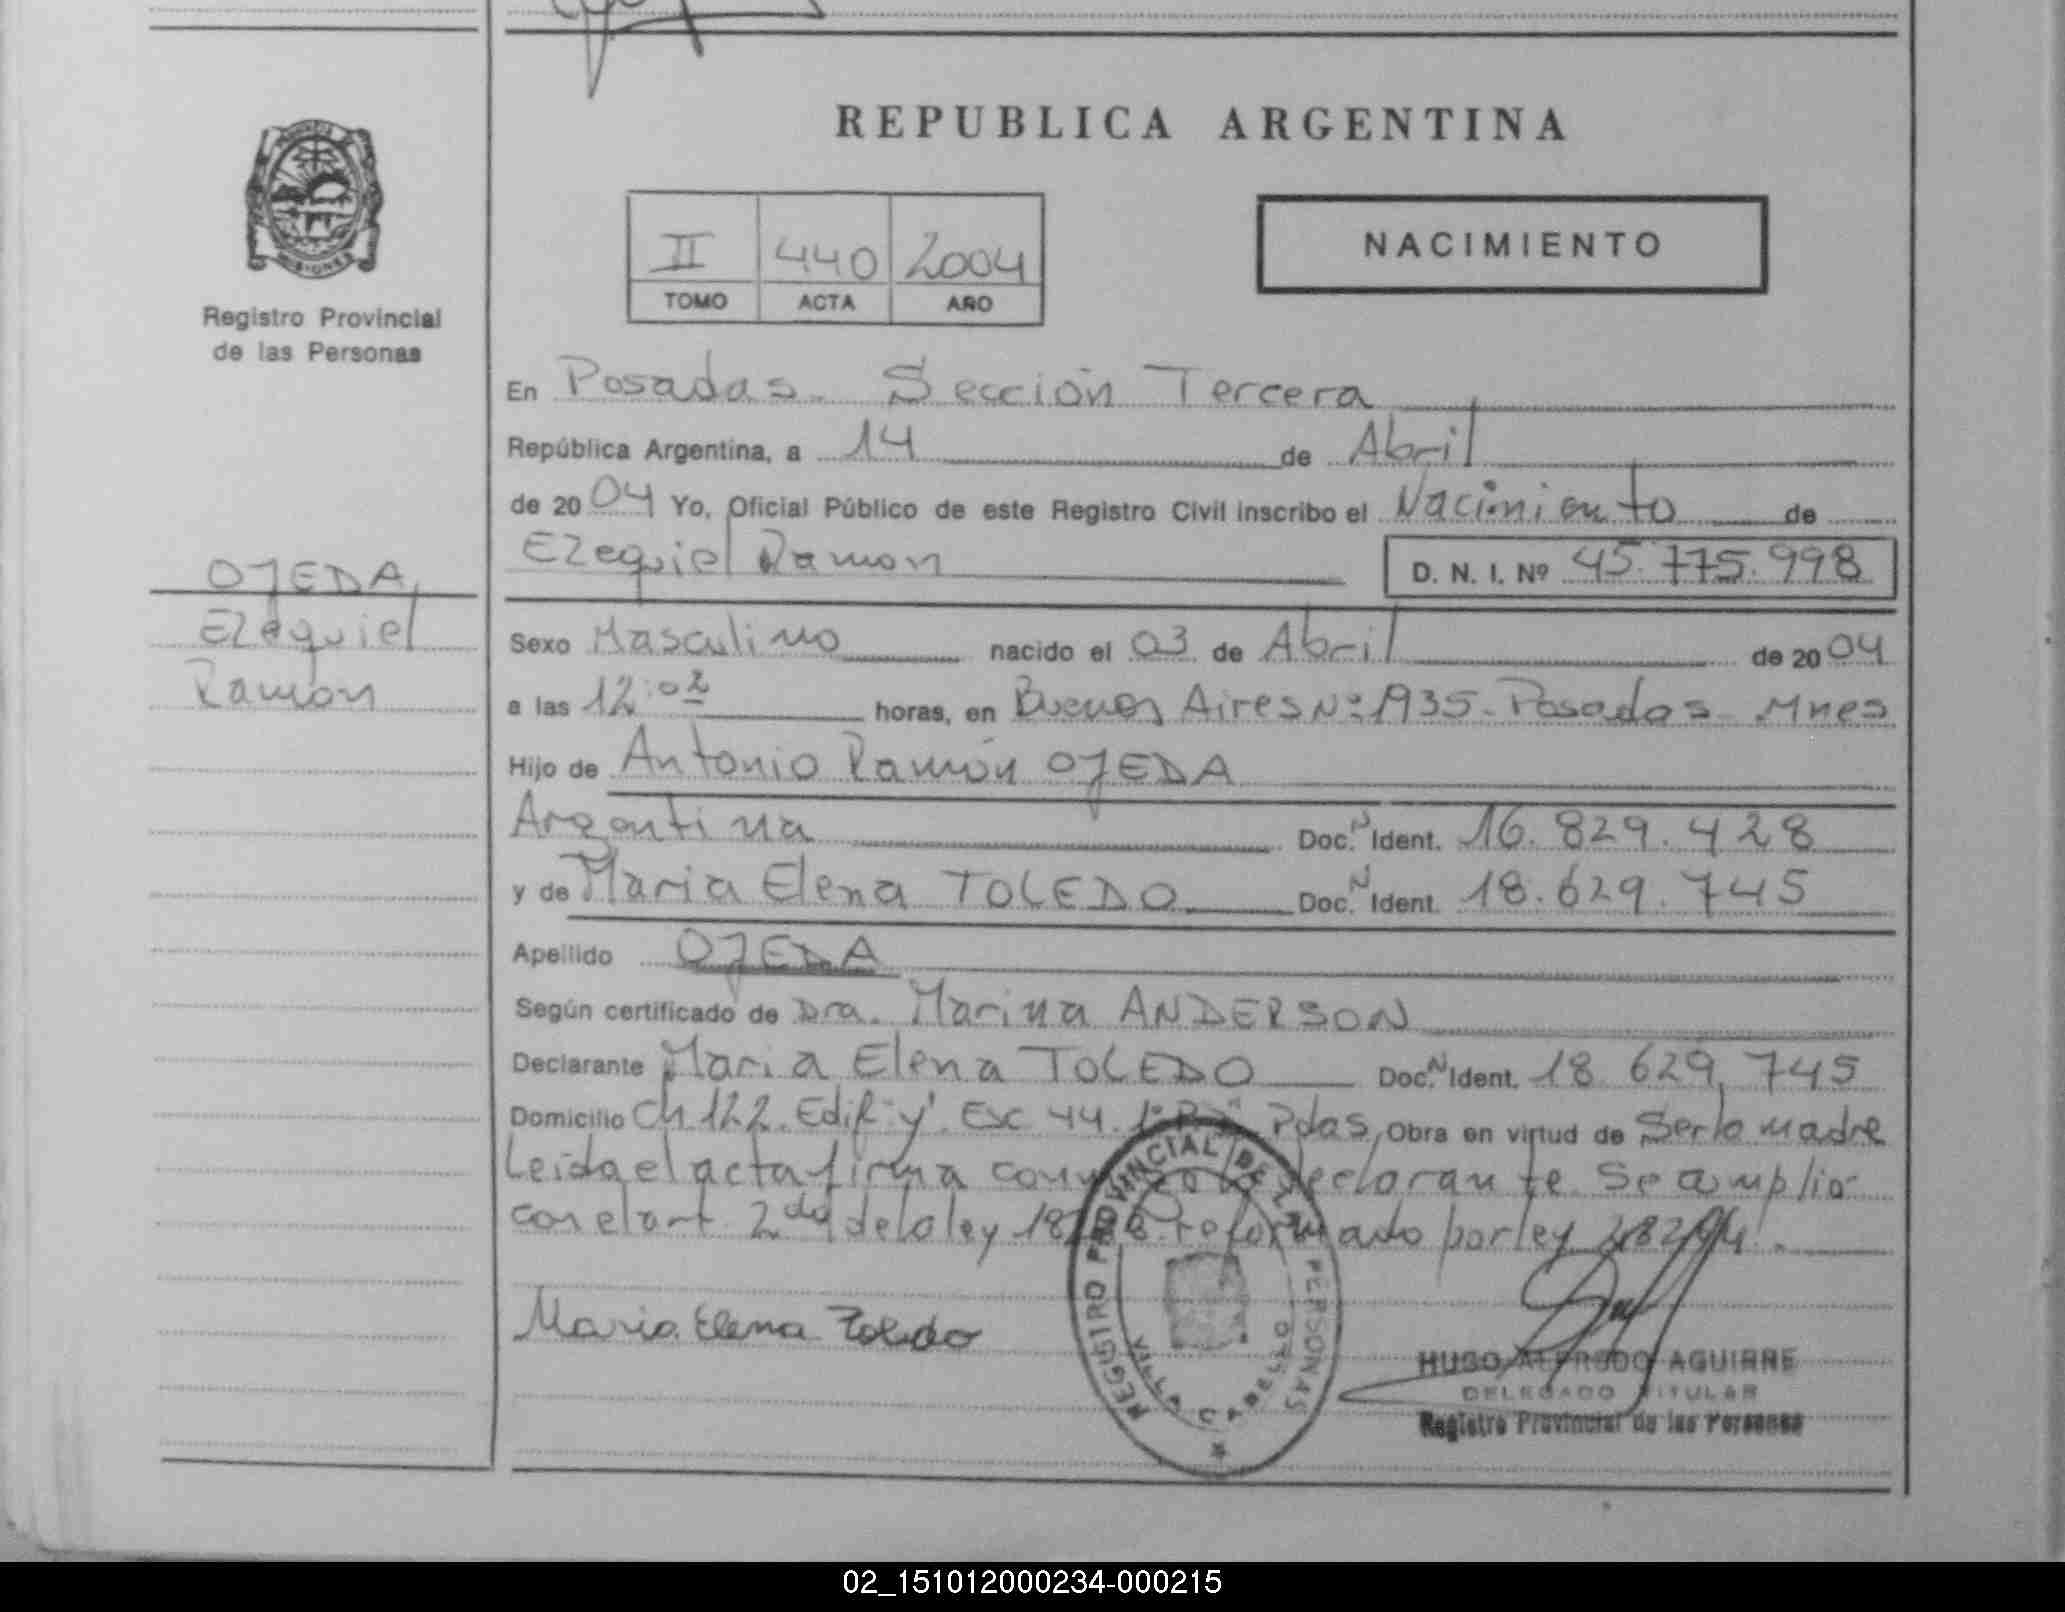 REPUBLICA ARGENTINA
PROVINCIA
MISIONES
Registro Provincial
de las Personas
II 440 2004
TOMO ACTA AÑO
NACIMIENTO
En Posadas. Sección Tercera
República Argentina, a 14 de Abril
de 2004 Yo, Oficial Público de este Registro Civil inscribo el Nacimiento de
Ezequiel Ramon D. N. I. Nº 45.775.998
OJEDA,
Ezequiel
Ramón
Sexo Masculino nacido el 03 de Abril de 2004
a las 12:02 horas, en Buenos Aires Nº 1935. Posadas. Mnes
Hijo de Antonio Ramón OJEDA
Argentina Doc. N Ident. 16.829.428
y de Maria Elena TOLEDO Doc. N Ident. 18.629.745
Apellido OJEDA
Según certificado de Dra. Marina ANDERSON
Declarante Maria Elena TOLEDO Doc. N Ident. 18 629,745
Domicilio Ch 122. Edif. "y" Esc 44. 1º Pdas, Obra en virtud de Ser la madre
Leida el acta firma declarante. Se amplia
con el art. 2do de la ley reformado por ley
Maria Elena Toledo
REGISTRO PROVINCIAL DE LAS PERSONAS
VILLA CABELLO
HUGO ALFREDO AGUIRRE
DELEGADO TITULAR
Registro Provincial de las Personas
02_151012000234-000215